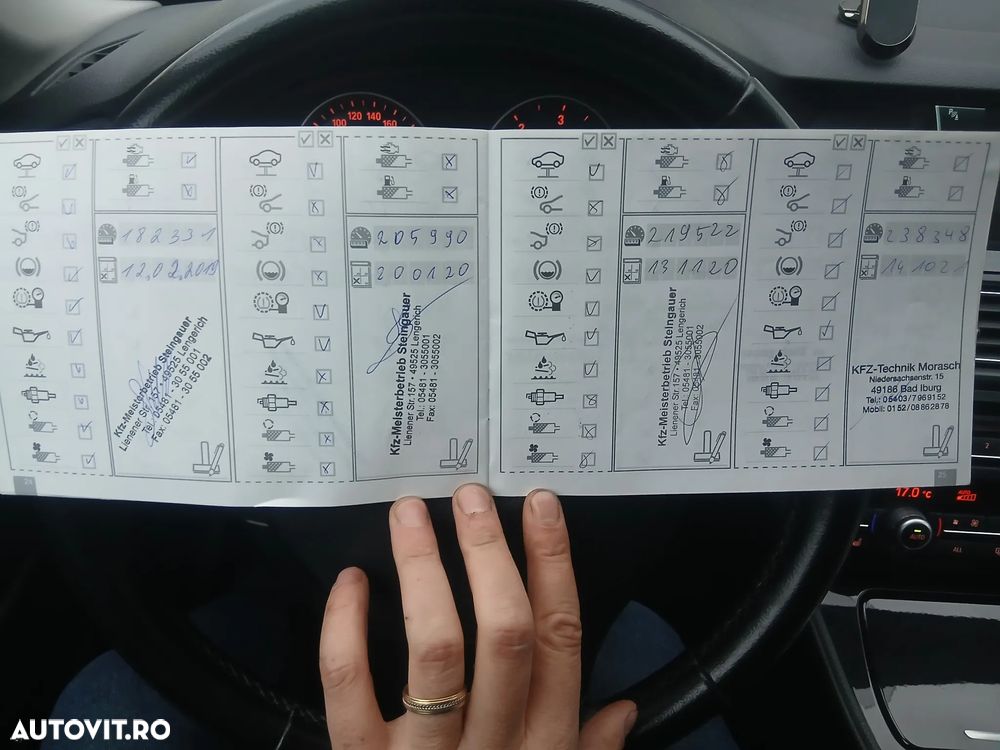 100 120 140 160
2 3
182331
12.02.2019
Kfz-Meisterbetrieb Steingauer
Lienener Str.157 · 49525 Lengerich
Tel.: 05481 - 30 55 001
Fax: 05481 - 30 55 002
24
205990
200120
Kfz-Meisterbetrieb Steingauer
Lienener Str.157 · 49525 Lengerich
Tel.: 05481 - 3055001
Fax: 05481 - 3055002
219522
131120
Kfz-Meisterbetrieb Steingauer
Lienener Str.157 · 49525 Lengerich
Tel.: 05481 - 3055001
Fax: 05481 - 3055002
238348
141021
KFZ-Technik Morasch
Niedersachsenstr. 15
49186 Bad Iburg
Tel.: 05403/7969152
Mobil: 0152/08862878
25
2
17.0 °C
AUTO
AUTO
ALL
AUTOVIT.RO